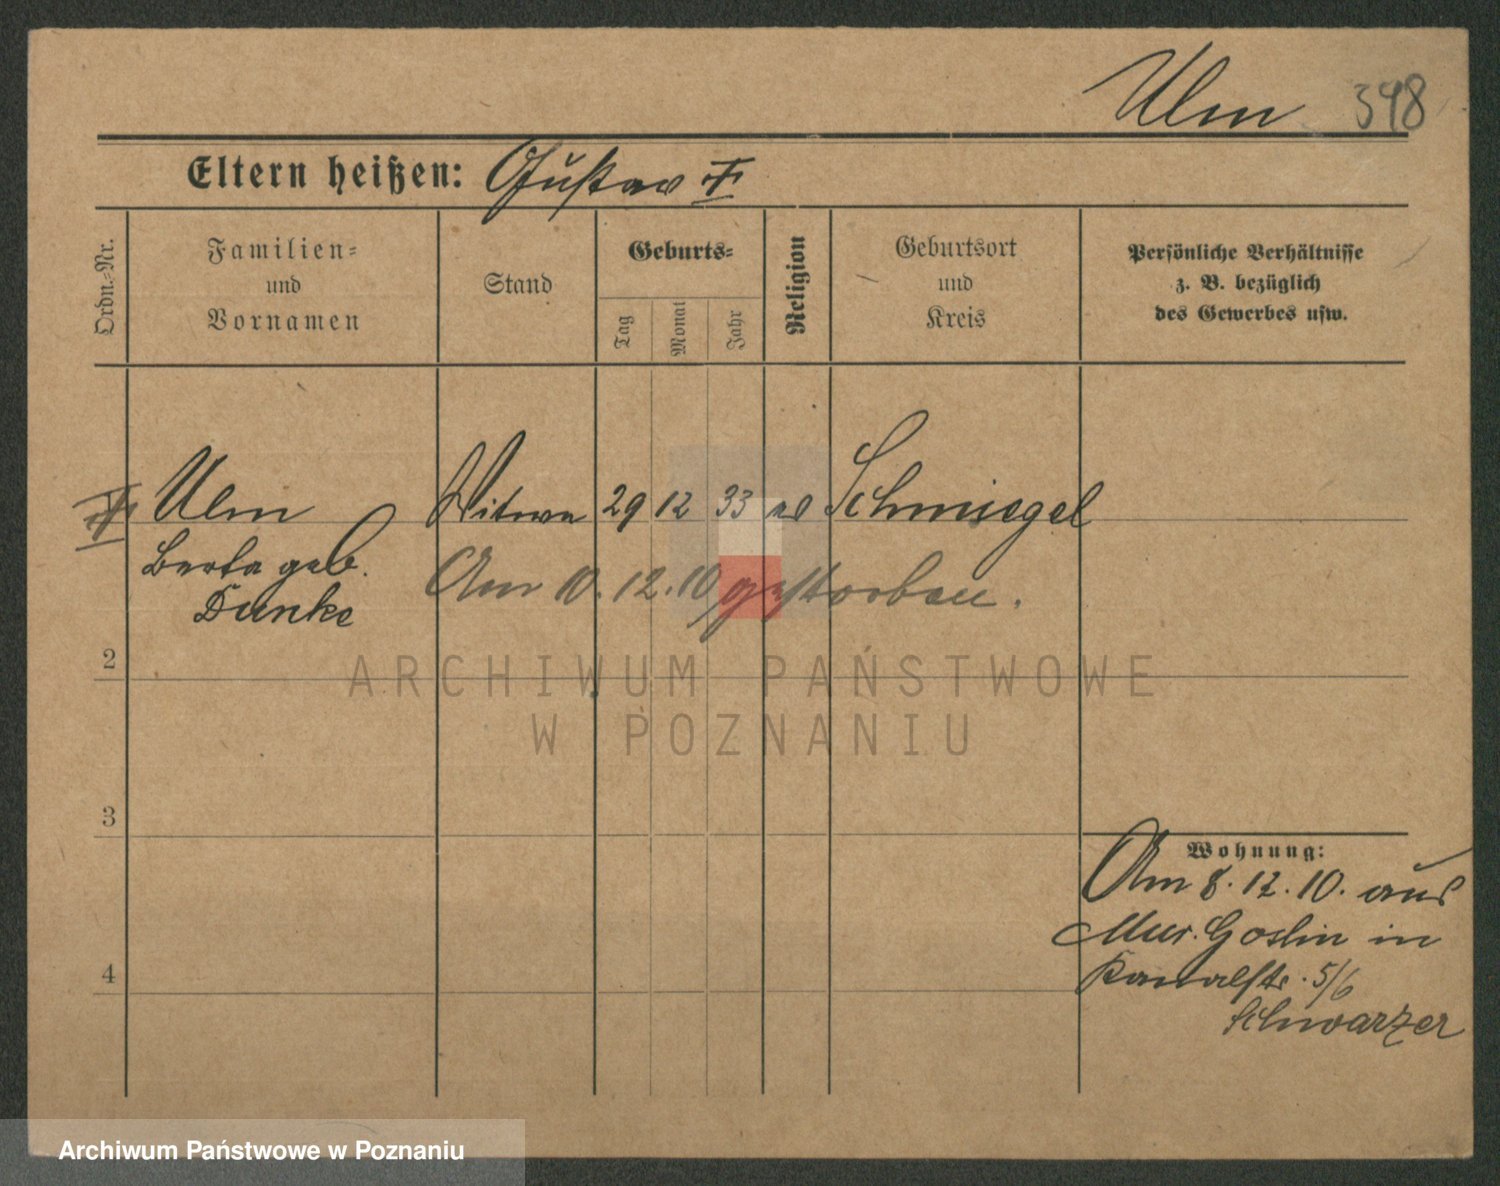 Ulm 398
Eltern heißen: Gustav †
Ordn.-Nr.
Familien-
und
Vornamen
Stand
Geburts-
Tag
Monat
Jahr
Religion
Geburtsort
und
Kreis
Persönliche Verhältnisse
z. B. bezüglich
des Gewerbes usw.
† Ulm Witwe 29 12 33 ev Schmiegel
Berta geb.
Dunke
Am 10.12.10 gestorben.
2
ARCHIWUM PAŃSTWOWE
W POZNANIU
3
Wohnung:
Am 8.12.10. aus
Mur. Goslin in
4
Kanalstr. 5/6
Schwarzer
Archiwum Państwowe w Poznaniu